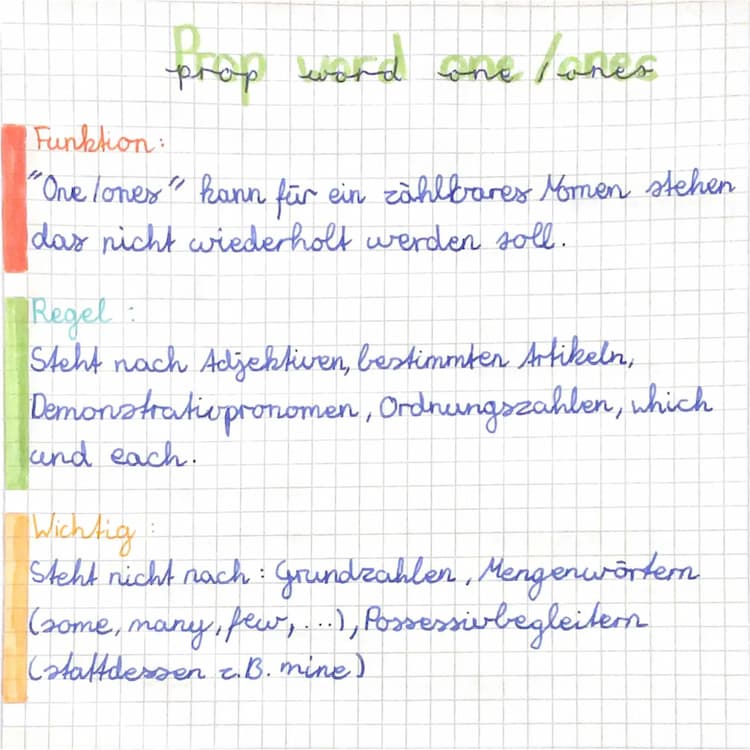 Prop word one/ones
prop word one/ones
Funktion:
"One/ones" kann für ein zählbares Nomen stehen
das nicht wiederholt werden soll.
Regel :
Steht nach Adjektiven, bestimmten Artikeln,
Demonstrativpronomen, Ordnungszahlen, which
und each.
Wichtig :
Steht nicht nach: Grundzahlen, Mengenwörtern
(some, many, few, ...), Possessivbegleitern
(stattdessen z.B. mine)